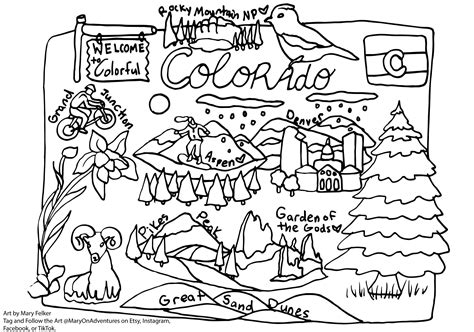 Rocky Mountain NP
WELCOME
to
Colorful
COLORADO
C
Grand Junction
Denver
Aspen
Pikes Peak
Garden of
the Gods
Great Sand Dunes
Art by Mary Felker
Tag and Follow the Art @MaryOnAdventures on Etsy, Instagram,
Facebook, or TikTok.